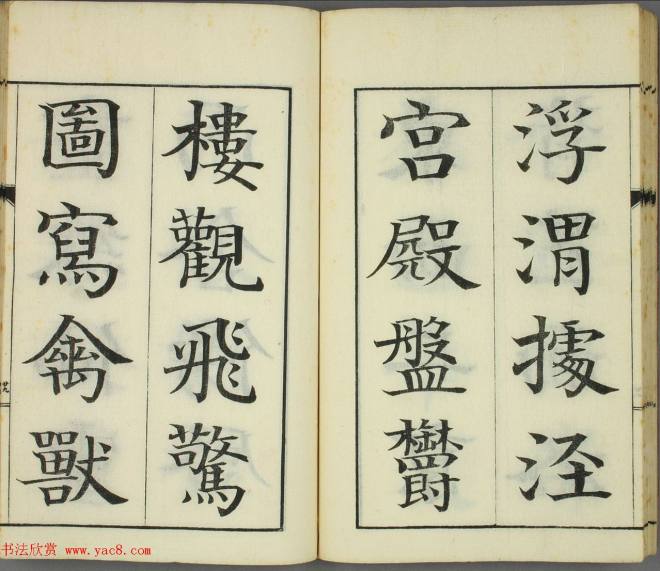 浮渭據涇
宮殿盤鬱
樓觀飛驚
圖寫禽獸
书法欣赏 www.yac8.com